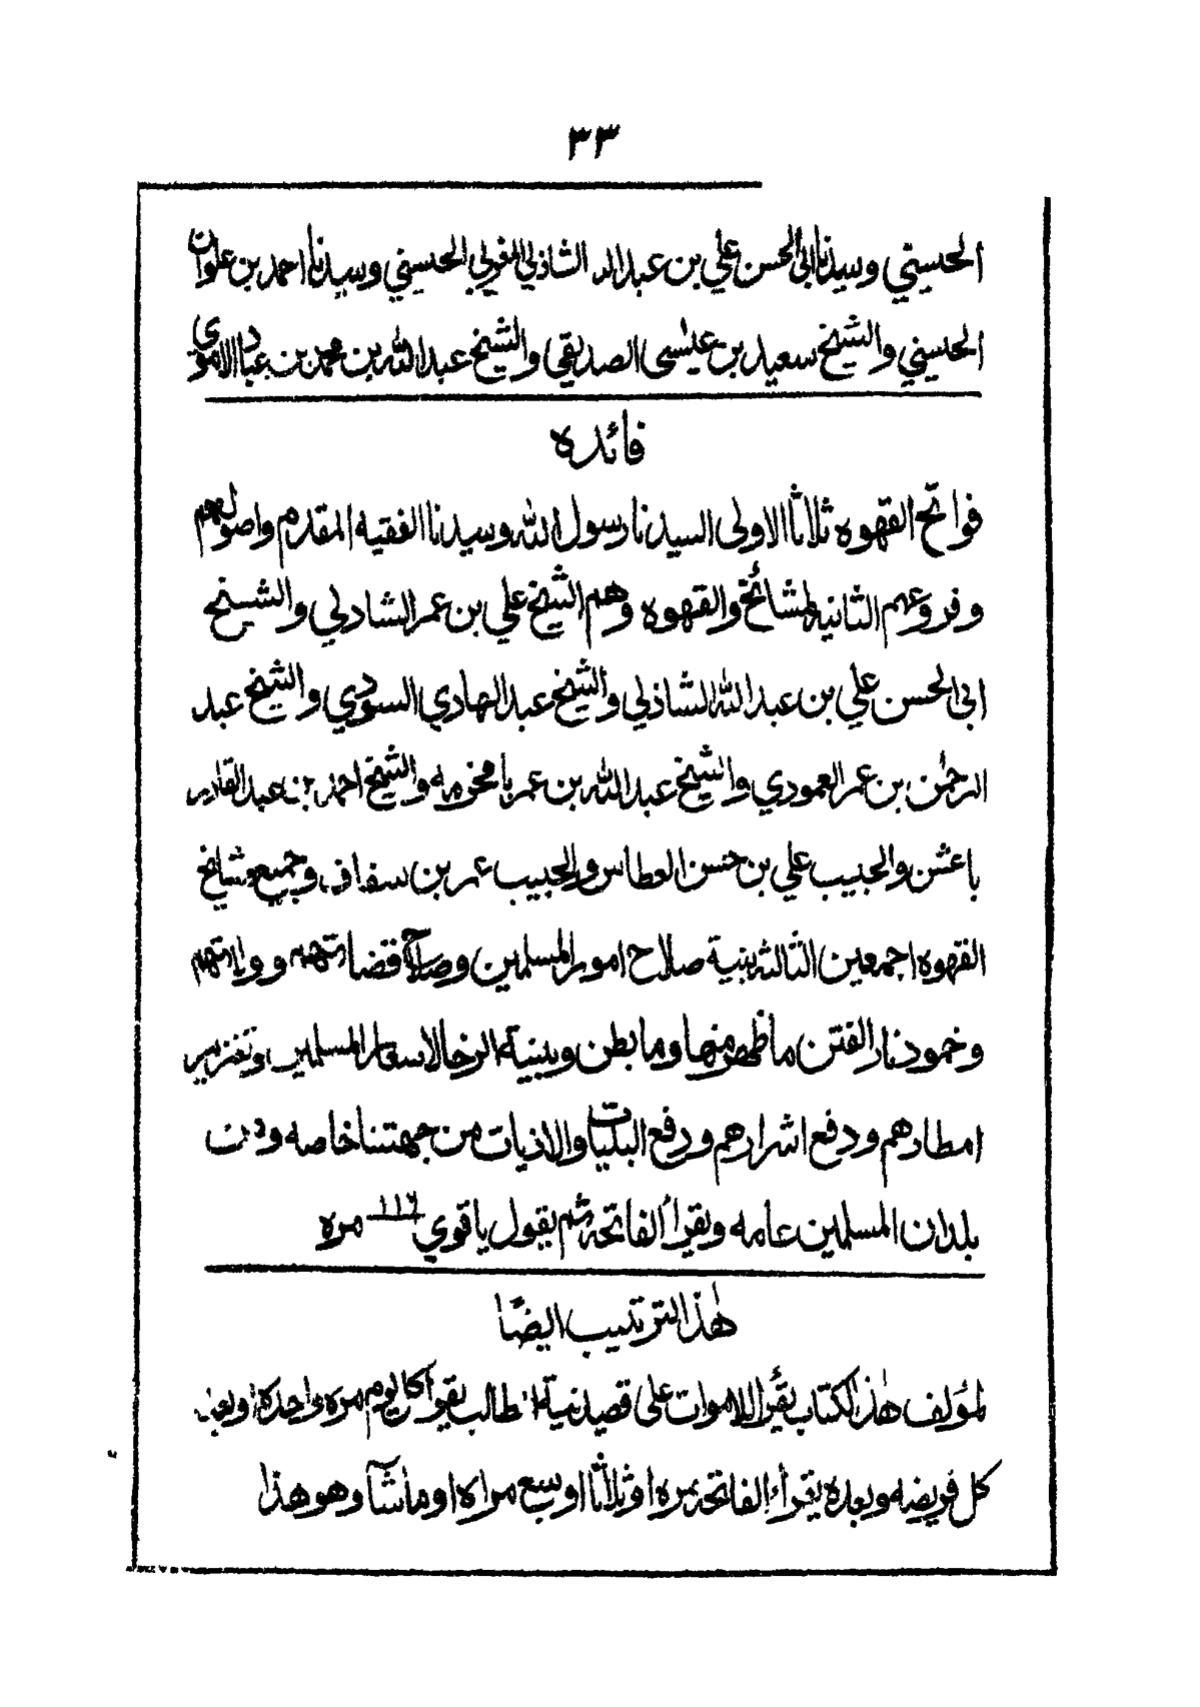 ٣٣
الحسيني وسيدنا ابي الحسن علي بن عبدالله الشاذلي المغربي الحسيني وسيدنا احمد بن علوان
الحسيني والشيخ سعيد بن عيسى الصديقي والشيخ عبدالله بن محمد بن عباد الاموي
فائده
فواتح القهوه ثلاثا الاولى السيدنا رسول الله وسيدنا الفقيه المقدم واصولهم
وفروعهم الثانيه لمشائخ والقهوه وهم الشيخ علي بن عمر الشادلي والشيخ
ابي الحسن علي بن عبدالله الشاذلي والشيخ عبدالهادي السودي والشيخ عبد
الرحمٰن بن عمر العمودي والشيخ عبدالله بن عمر بامخرمه والشيخ احمد بن عبدالقادر
باعشن والحبيب علي بن حسن العطاس والحبيب عمر بن سقاف وجميع مشايخ
القهوه اجمعين الثالثه بنية صلاح امور المسلمين وصلاح قضاتهم وولاتهم
وخمود نار الفتن ما ظهر منها وما بطن وبنية الرخا لاسعار المسلمين وتغزير
امطارهم ودفع اشرارهم ودفع البليات والاذيات من جهتنا خاصه ومن
بلدان المسلمين عامه ويقرأ الفاتحة ثم يقول ياقوي ١١٦ مره
هٰذا الترتيب ايضًا
لمؤلف هٰذا الكتاب يقرأ للاموات على قصد نية الطالب يقرأ كل يوم مره واحدة او بعد
كل فريضه وبعده يقرأ الفاتحة مره او ثلاثا او سبع مراة او ماشآ وهو هذا